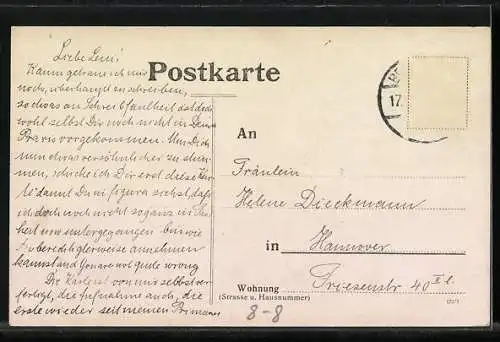 Liebe Leni!
Kaum getraue ich mir
noch, überhaupt zu schreiben,
so etwas an Schreibfaulheit ist dir
wohl selbst Dir noch nicht in Deiner
Praxis vorgekommen. Um Dich
nun etwas versöhnlicher zu stim-
men, schicke ich Dir erst diese Kar-
te damit Du in figura siehst, daß
ich doch noch nicht so ganz in
untergegangen bin wie
Du berechtigterweise annehmen
kannst and you are not quite wrong
Die Karte ist von mir selbst ver-
fertigt, die Aufnahme auch, die
erste wieder seit meinen Primaner
Postkarte
17.
An
Fräulein
Helene Dieckmann
in Hannover
Wohnung Friesenstr 40 II l.
(Strasse u. Hausnummer)
8-8